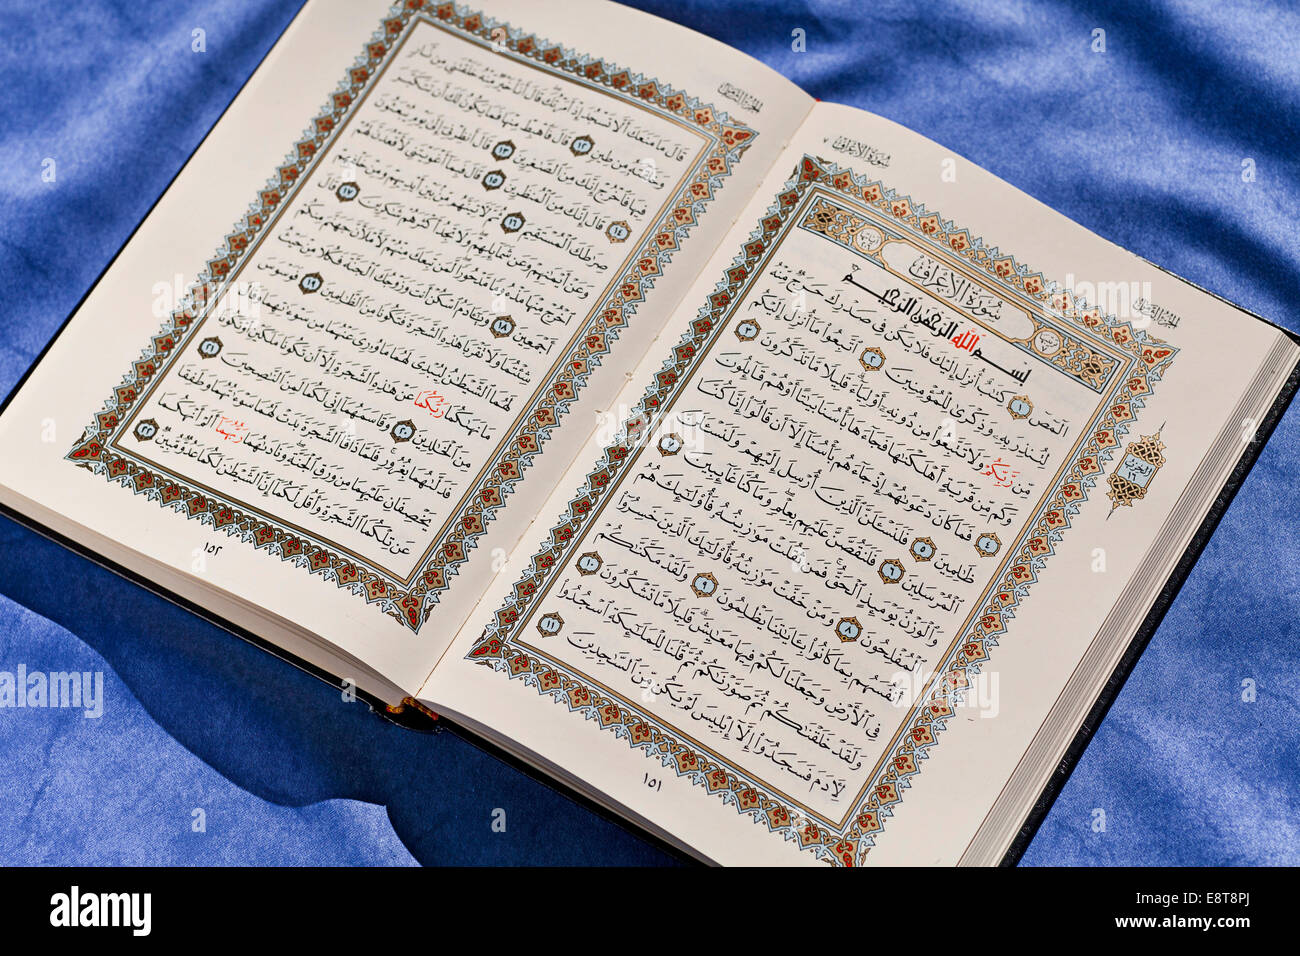 سُورَةُ الأَعْرَافِ
الجُزْءُ الثَّامِنُ
سُورَةُ الأَعْرَافِ
بِسْمِ ٱللَّهِ ٱلرَّحْمَٰنِ ٱلرَّحِيمِ
الٓمٓصٓ ١ كِتَٰبٌ أُنزِلَ إِلَيْكَ فَلَا يَكُن فِى صَدْرِكَ حَرَجٌ مِّنْهُ
لِتُنذِرَ بِهِۦ وَذِكْرَىٰ لِلْمُؤْمِنِينَ ٢ ٱتَّبِعُوا۟ مَآ أُنزِلَ إِلَيْكُم
مِّن رَّبِّكُمْ وَلَا تَتَّبِعُوا۟ مِن دُونِهِۦٓ أَوْلِيَآءَ ۗ قَلِيلًا مَّا تَذَكَّرُونَ ٣
وَكَم مِّن قَرْيَةٍ أَهْلَكْنَٰهَا فَجَآءَهَا بَأْسُنَا بَيَٰتًا أَوْ هُمْ قَآئِلُونَ
٤ فَمَا كَانَ دَعْوَىٰهُمْ إِذْ جَآءَهُم بَأْسُنَآ إِلَّآ أَن قَالُوٓا۟ إِنَّا كُنَّا
ظَٰلِمِينَ ٥ فَلَنَسْـَٔلَنَّ ٱلَّذِينَ أُرْسِلَ إِلَيْهِمْ وَلَنَسْـَٔلَنَّ
ٱلْمُرْسَلِينَ ٦ فَلَنَقُصَّنَّ عَلَيْهِم بِعِلْمٍ ۖ وَمَا كُنَّا غَآئِبِينَ ٧
وَٱلْوَزْنُ يَوْمَئِذٍ ٱلْحَقُّ ۚ فَمَن ثَقُلَتْ مَوَٰزِينُهُۥ فَأُو۟لَٰٓئِكَ هُمُ
ٱلْمُفْلِحُونَ ٨ وَمَنْ خَفَّتْ مَوَٰزِينُهُۥ فَأُو۟لَٰٓئِكَ ٱلَّذِينَ خَسِرُوٓا۟
أَنفُسَهُم بِمَا كَانُوا۟ بِـَٔايَٰتِنَا يَظْلِمُونَ ٩ وَلَقَدْ مَكَّنَّٰكُمْ
فِى ٱلْأَرْضِ وَجَعَلْنَا لَكُمْ فِيهَا مَعَٰيِشَ ۗ قَلِيلًا مَّا تَشْكُرُونَ ١٠
وَلَقَدْ خَلَقْنَٰكُمْ ثُمَّ صَوَّرْنَٰكُمْ ثُمَّ قُلْنَا لِلْمَلَٰٓئِكَةِ ٱسْجُدُوا۟
لِـَٔادَمَ فَسَجَدُوٓا۟ إِلَّآ إِبْلِيسَ لَمْ يَكُن مِّنَ ٱلسَّٰجِدِينَ ١١
١٥١
الجُزْءُ الثَّامِنُ
قَالَ مَا مَنَعَكَ أَلَّا تَسْجُدَ إِذْ أَمَرْتُكَ ۖ قَالَ أَنَا۠ خَيْرٌ مِّنْهُ خَلَقْتَنِى مِن نَّارٍ
وَخَلَقْتَهُۥ مِن طِينٍ ١٢ قَالَ فَٱهْبِطْ مِنْهَا فَمَا يَكُونُ لَكَ أَن تَتَكَبَّرَ
فِيهَا فَٱخْرُجْ إِنَّكَ مِنَ ٱلصَّٰغِرِينَ ١٣ قَالَ أَنظِرْنِىٓ إِلَىٰ يَوْمِ يُبْعَثُونَ
١٤ قَالَ إِنَّكَ مِنَ ٱلْمُنظَرِينَ ١٥ قَالَ فَبِمَآ أَغْوَيْتَنِى لَأَقْعُدَنَّ لَهُمْ
صِرَٰطَكَ ٱلْمُسْتَقِيمَ ١٦ ثُمَّ لَـَٔاتِيَنَّهُم مِّنۢ بَيْنِ أَيْدِيهِمْ وَمِنْ خَلْفِهِمْ
وَعَنْ أَيْمَٰنِهِمْ وَعَن شَمَآئِلِهِمْ ۖ وَلَا تَجِدُ أَكْثَرَهُمْ شَٰكِرِينَ ١٧ قَالَ
ٱخْرُجْ مِنْهَا مَذْءُومًا مَّدْحُورًا ۖ لَّمَن تَبِعَكَ مِنْهُمْ لَأَمْلَأَنَّ جَهَنَّمَ مِنكُمْ
أَجْمَعِينَ ١٨ وَيَٰٓـَٔادَمُ ٱسْكُنْ أَنتَ وَزَوْجُكَ ٱلْجَنَّةَ فَكُلَا مِنْ حَيْثُ
شِئْتُمَا وَلَا تَقْرَبَا هَٰذِهِ ٱلشَّجَرَةَ فَتَكُونَا مِنَ ٱلظَّٰلِمِينَ ١٩ فَوَسْوَسَ
لَهُمَا ٱلشَّيْطَٰنُ لِيُبْدِىَ لَهُمَا مَا وُۥرِىَ عَنْهُمَا مِن سَوْءَٰتِهِمَا وَقَالَ
مَا نَهَىٰكُمَا رَبُّكُمَا عَنْ هَٰذِهِ ٱلشَّجَرَةِ إِلَّآ أَن تَكُونَا مَلَكَيْنِ أَوْ تَكُونَا
مِنَ ٱلْخَٰلِدِينَ ٢٠ وَقَاسَمَهُمَآ إِنِّى لَكُمَا لَمِنَ ٱلنَّٰصِحِينَ ٢١
فَدَلَّىٰهُمَا بِغُرُورٍ ۚ فَلَمَّا ذَاقَا ٱلشَّجَرَةَ بَدَتْ لَهُمَا سَوْءَٰتُهُمَا وَطَفِقَا
يَخْصِفَانِ عَلَيْهِمَا مِن وَرَقِ ٱلْجَنَّةِ ۖ وَنَادَىٰهُمَا رَبُّهُمَآ أَلَمْ أَنْهَكُمَا
عَن تِلْكُمَا ٱلشَّجَرَةِ وَأَقُل لَّكُمَآ إِنَّ ٱلشَّيْطَٰنَ لَكُمَا عَدُوٌّ مُّبِينٌ ٢٢
١٥٢
alamy
E8T8PJ
www.alamy.com